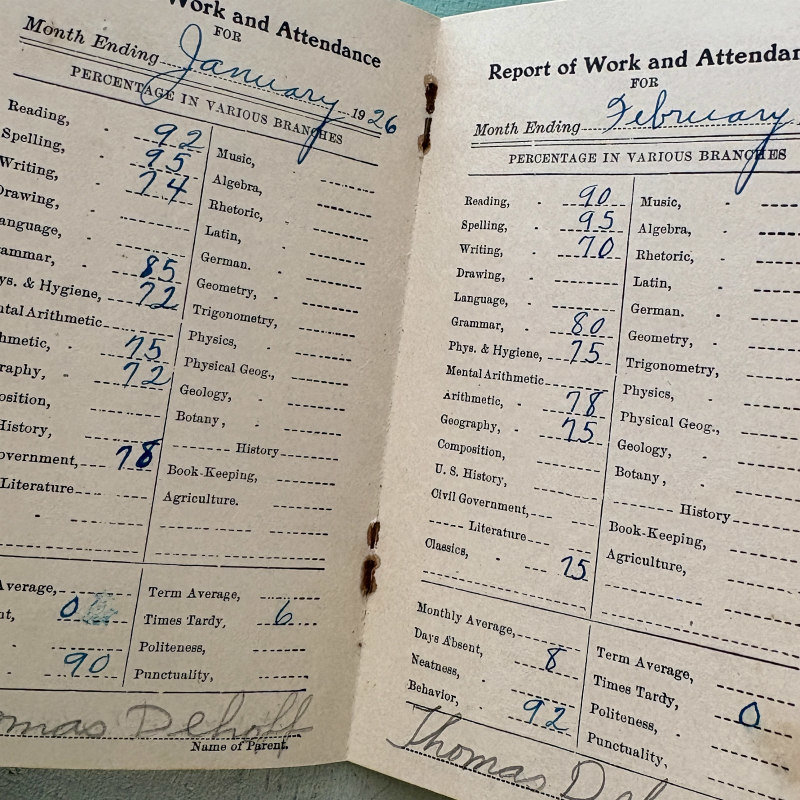 Work and Attendance
FOR
Month Ending January 1926
PERCENTAGE IN VARIOUS BRANCHES
Reading, 92
Spelling, 95
Writing, 74
Drawing,
anguage,
ammar, 85
ys. & Hygiene, 72
ntal Arithmetic
hmetic, 75
raphy, 72
osition,
History,
overnment, 78
Literature
Music,
Algebra,
Rhetoric,
Latin,
German.
Geometry,
Trigonometry,
Physics,
Physical Geog.,
Geology,
Botany,
History
Book-Keeping,
Agriculture.
Average,
nt, 0
90
Term Average,
Times Tardy, 6
Politeness,
Punctuality,
omas Dehoff
Name of Parent.
Report of Work and Attendan
FOR
Month Ending February
PERCENTAGE IN VARIOUS BRANCHES
Reading, 90
Spelling, 95
Writing, 70
Drawing,
Language,
Grammar, 80
Phys. & Hygiene, 75
Mental Arithmetic
Arithmetic, 78
Geography, 75
Composition,
U. S. History,
Civil Government,
Literature
Classics, 75
Music,
Algebra,
Rhetoric,
Latin,
German.
Geometry,
Trigonometry,
Physics,
Physical Geog.,
Geology,
Botany,
History
Book-Keeping,
Agriculture,
Monthly Average,
Days Absent, 8
Neatness,
Behavior, 92
Term Average,
Times Tardy, 0
Politeness,
Punctuality,
Thomas Deh